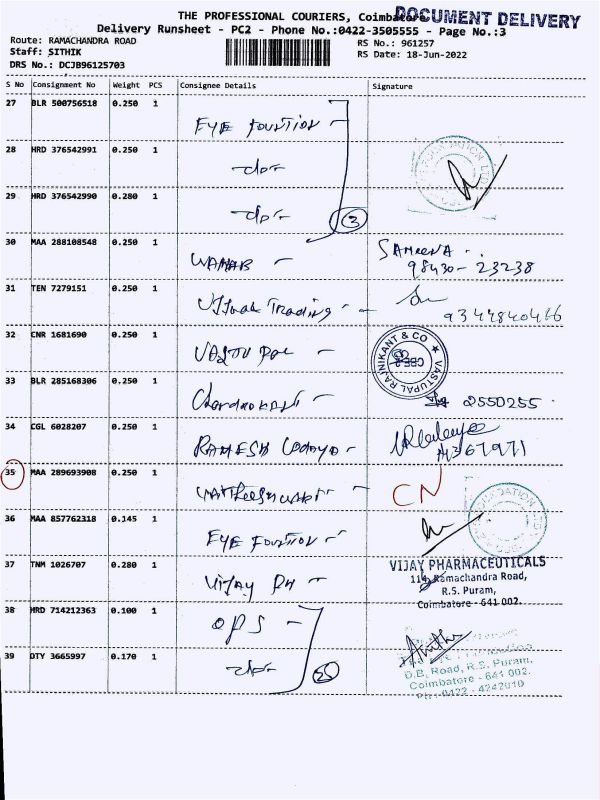 THE PROFESSIONAL COURIERS, Coimbatore
DOCUMENT DELIVERY
Delivery Runsheet - PC2 - Phone No.:0422-3505555 - Page No.:3
Route: RAMACHANDRA ROAD
RS No.: 961257
Staff: SITHIK
RS Date: 18-Jun-2022
DRS No.: DCJB96125703
S No Consignment No Weight PCS Consignee Details Signature
27 BLR 500756518 0.250 1
EYE FOUNTION
28 HRD 376542991 0.250 1
-do-
29 HRD 376542990 0.280 1
-do-
3
30 MAA 288108548 0.250 1
WAHAB
SAMEENA
98430-23238
31 TEN 7279151 0.250 1
Trading
9344840466
32 CNR 1681690 0.250 1
VASTUPAL RAJNIKANT & CO
CBE-2
33 BLR 285168306 0.250 1
2550255
34 CGL 6028207 0.250 1
RAMESH
35 MAA 289693908 0.250 1
CN
36 MAA 857762318 0.145 1
EYE FOUNTION
37 TNM 1026707 0.280 1
VIJAY PH
VIJAY PHARMACEUTICALS
114, Ramachandra Road,
R.S. Puram,
Coimbatore - 641 002.
38 HRD 714212363 0.100 1
OPS
39 DTY 3665997 0.170 1
-do-
D.B. Road, R.S. Puram,
Coimbatore - 641 002.
Ph: 0422 - 4242010